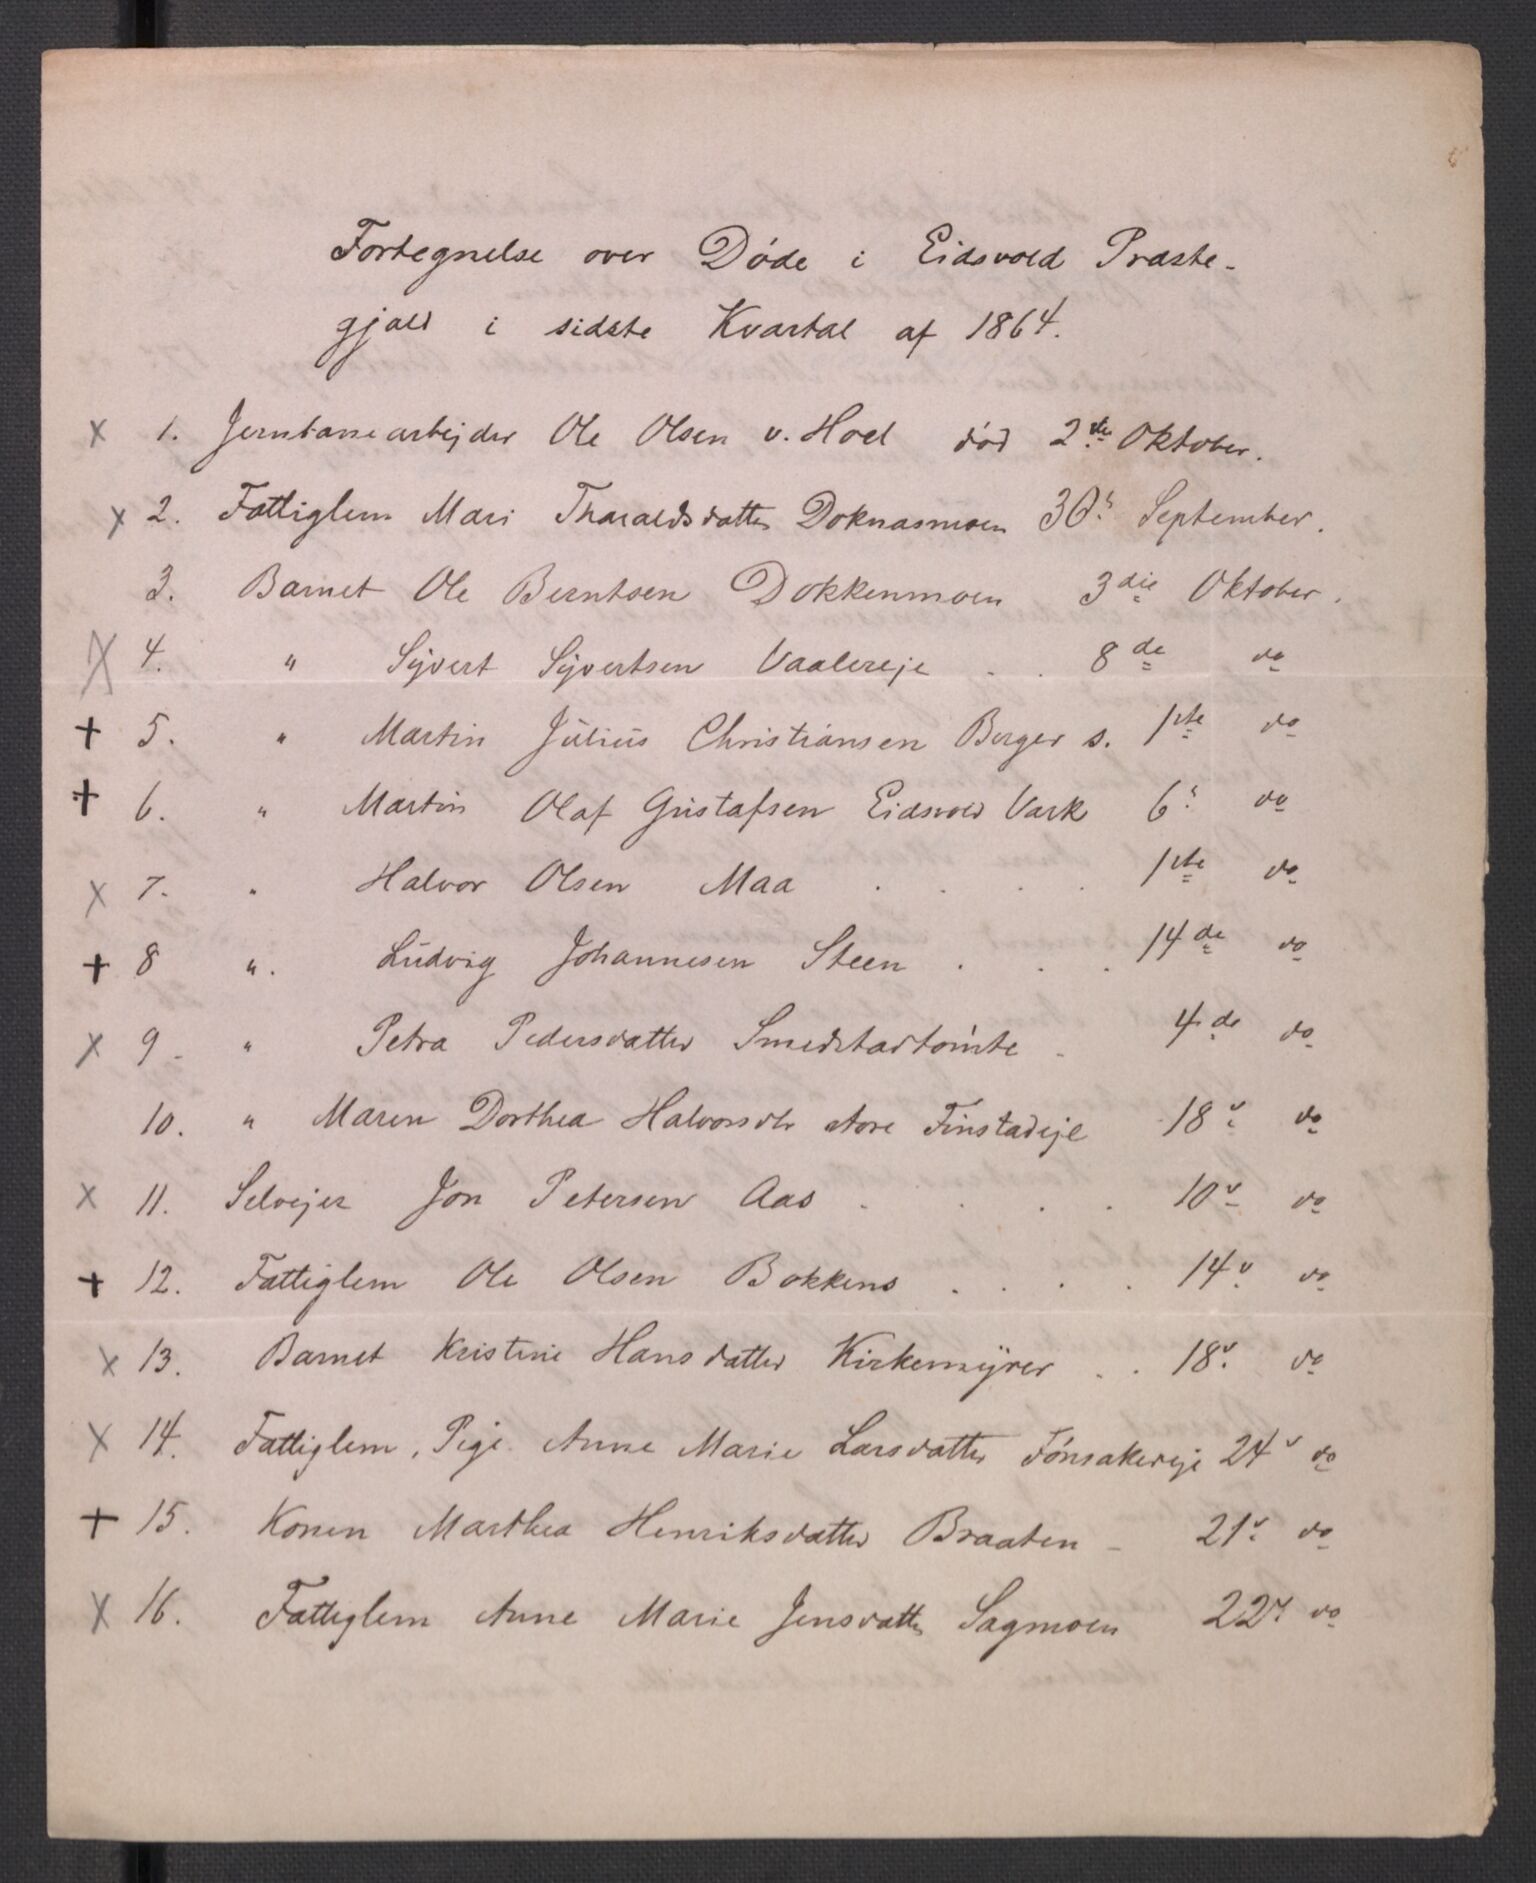 Fortegnelse over Døde i Eidsvold Præste-
gjæld i sidste Kvartal af 1864.
x 1. Jernbanearbejder Ole Olsen v. Hoel død 2den Oktober.
x 2. Fattiglem Mari Tharaldsdatter Doknasmoen 30" September.
3. Barnet Ole Berntsen Dokkenmoen 3die Oktober.
x 4. " Syvert Syvertsen Vaalereje . . 8de do
+ 5. " Martin Julius Christiansen Berger s. 1ste do
+ 6. " Martin Olaf Gustafsen Eidsvold Værk 6" do
x 7. " Halvor Olsen Maa . . . . 1ste do
+ 8 " . Ludvig Johannesen Steen . . . 14de do
x 9 - " Petra Pedersdatter Smedstadtomte - 4de do
10. " Maren Dorthea Halvorsdtr store Finstadeje 18" do
x 11. Selvejer Jon Petersen Aas . . . . 10" do
+ 12. Fattiglem Ole Olsen Bokkens . . . . 14" do
x 13. Barnet Kristine Hansdatter Kirkemyrer . . 18" do
x 14. Fattiglem, Pige Anne Marie Larsdatter Tønsakereje 24" do
+ 15. Konen Marthea Henriksdatter Braaten - 21" do
x 16. Fattiglem Anne Marie Jensdatter Sagmoen 22" do